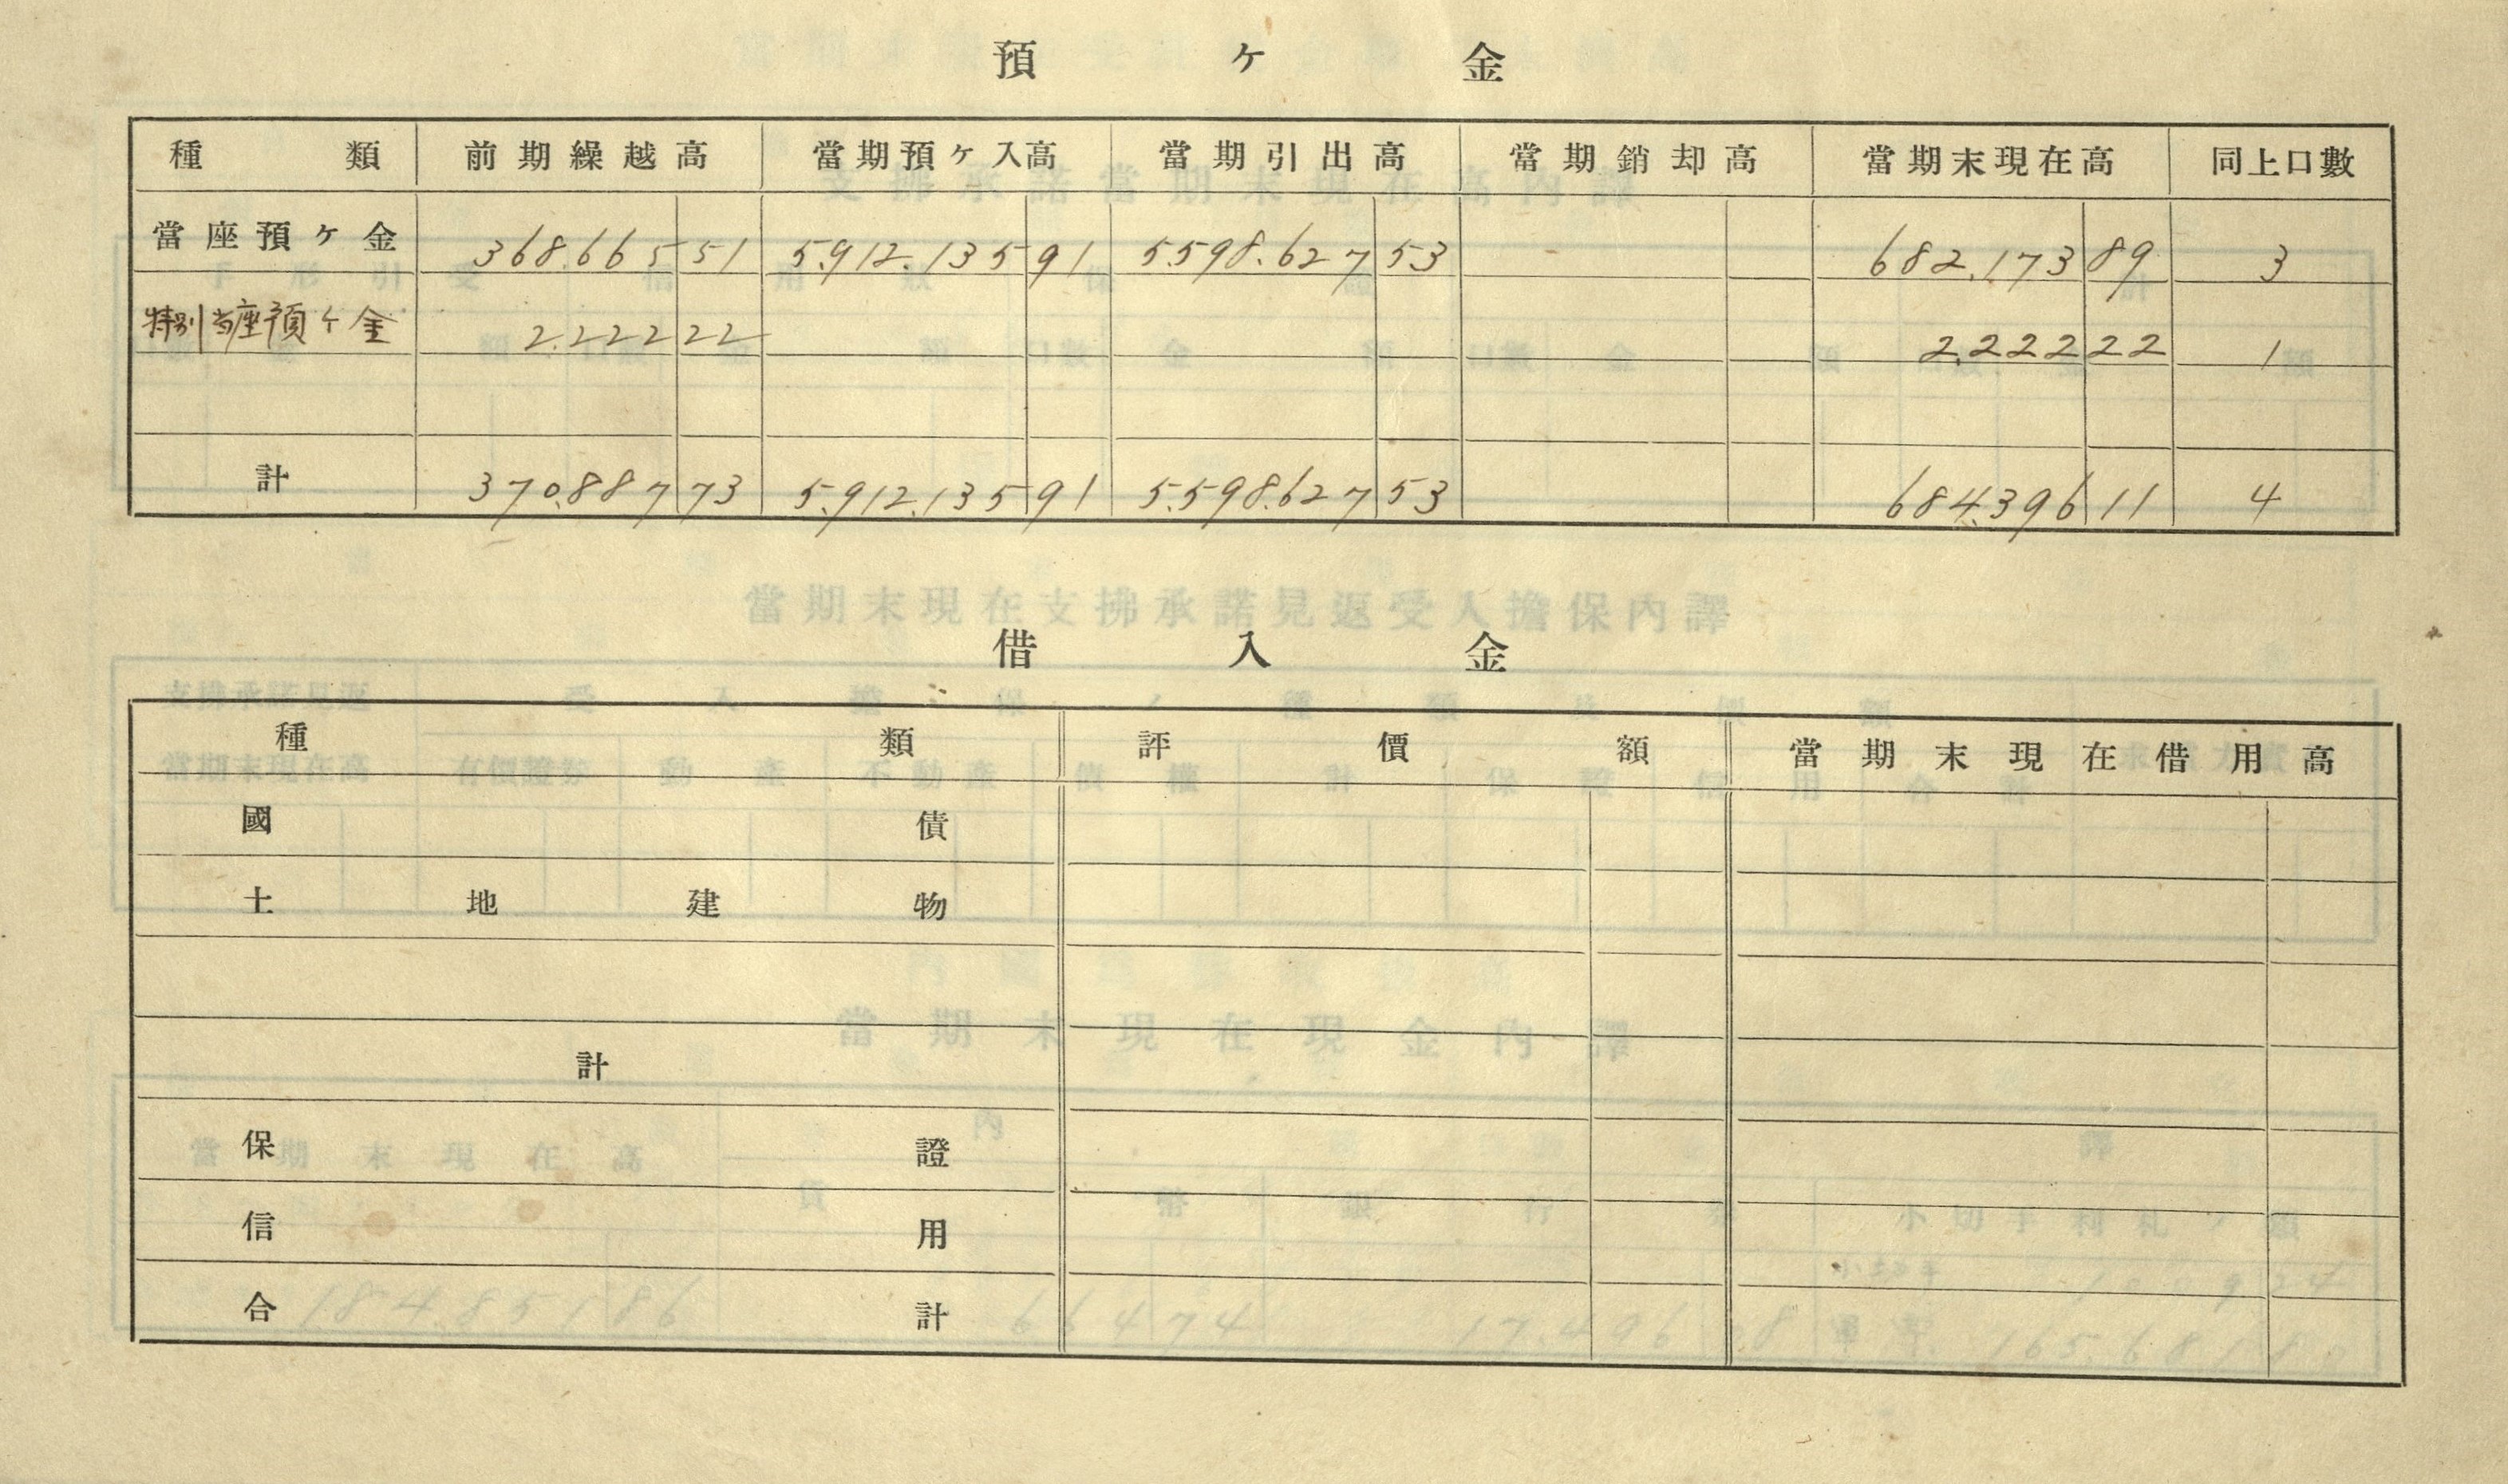 預ケ金
種類 前期繰越高 當期預ケ入高 當期引出高 當期銷却高 當期末現在高 同上口數
當座預ケ金 368.665 51 5.912.135 91 5.598.627 53 682.173 89 3
特別当座預ケ金 2.222 22 2.222 22 1
計 370.887 73 5.912.135 91 5.598.627 53 684.396 11 4
借入金
種類 評價額 當期末現在借用高
國債
土地建物
計
保證
信用
合計